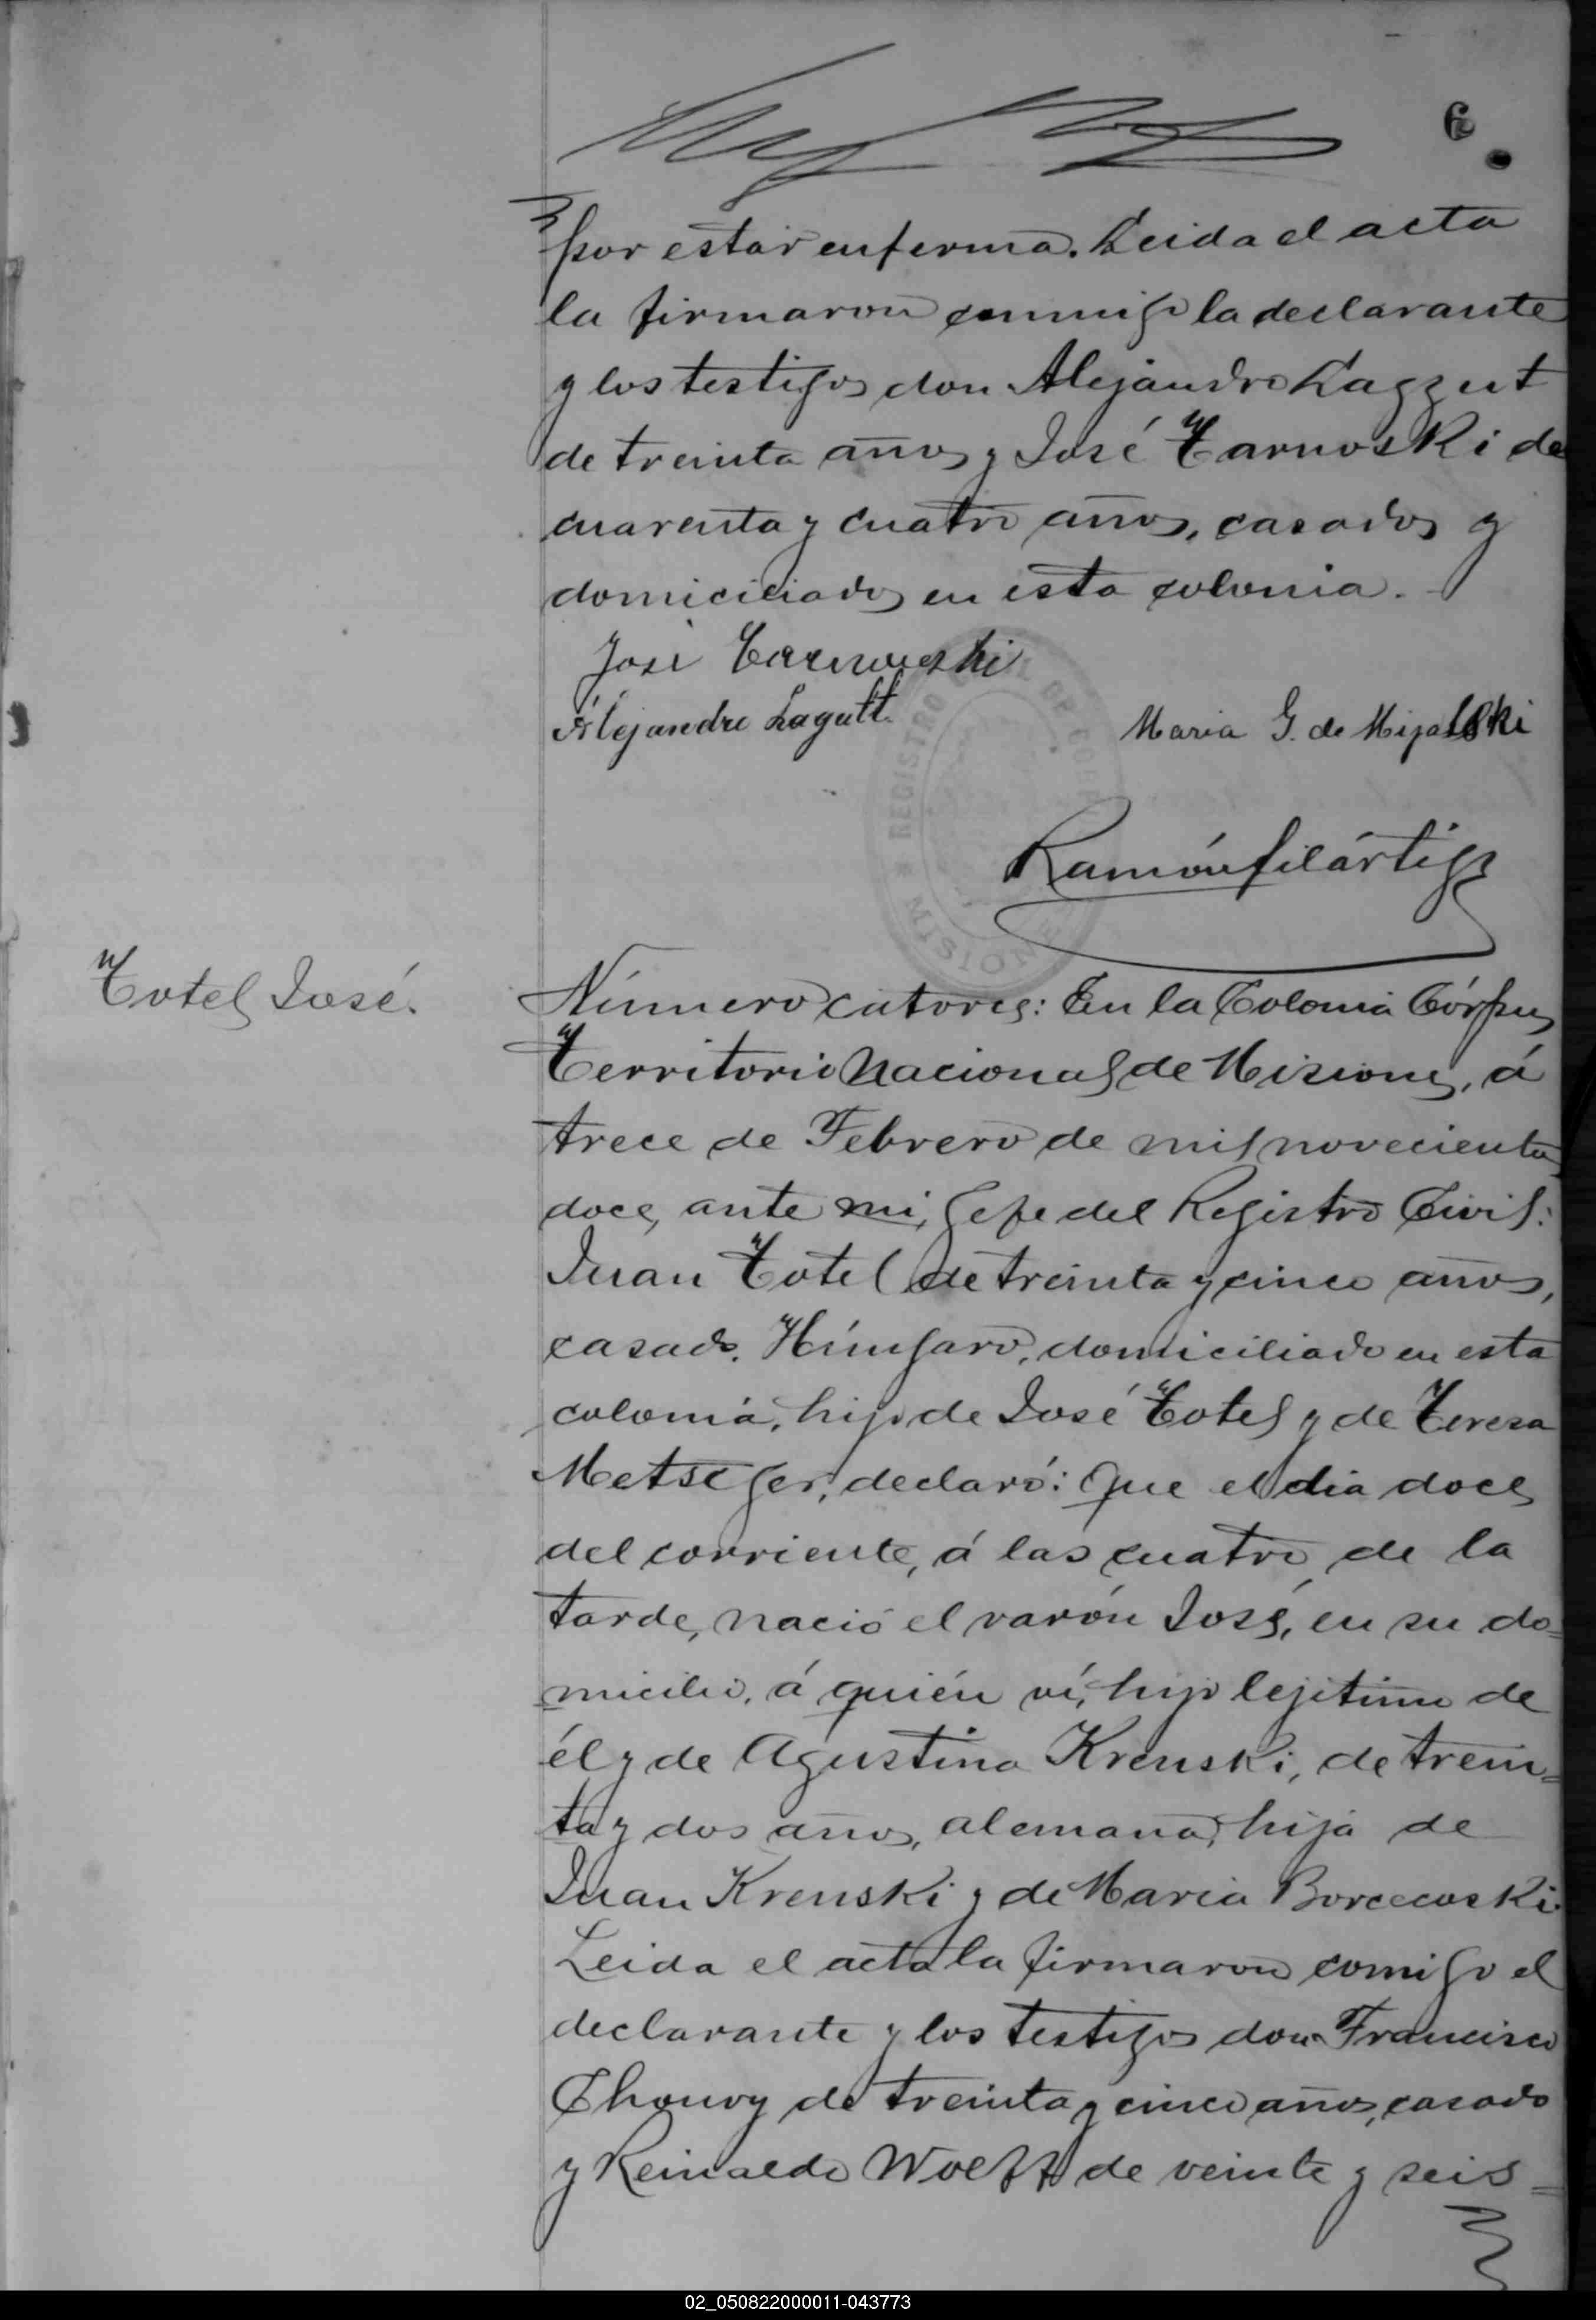 6
por estar enferma. Leida el acta
la firmaron conmigo la declarante
y los testigos don Alejandro Lagzut
de treinta años y José Tarnoski de
cuarenta y cuatro años, casados y
domiciciados en esta colonia.
José Tarnowski
Alejandro Lagutt
Maria G. de Migalski
REGISTRO CIVIL DE CORPUS
MISIONES
Ramón Filártiga
Totel José.
Número catorce: En la Colonia Córpus
Territorio Nacional de Misiones, á
trece de Febrero de mil novecientos
doce, ante mi, Gefe del Registro Civil:
Juan Totel de treinta y cinco años,
casado, Húngaro, domiciliado en esta
colonia, hijo de José Totel y de Teresa
Metseger, declaró: Que el dia doce
del corriente, á las cuatro de la
tarde, nació el varón José, en su do=
micilio, á quién ví, hijo lejitimo de
él y de Agustina Krenski, de trein=
ta y dos años, alemana, hija de
Juan Krenski y de Maria Borcecoski
Leida el acta la firmaron comigo el
declarante y los testigos don Francisco
Chouvy de treinta y cinco años, casado
y Reinaldo Wolff de veinte y seis=
02_050822000011-043773